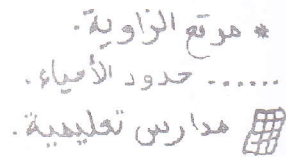 * موقع الزاوية.
...... حدود الأحياء.
مدارس تعليمية.